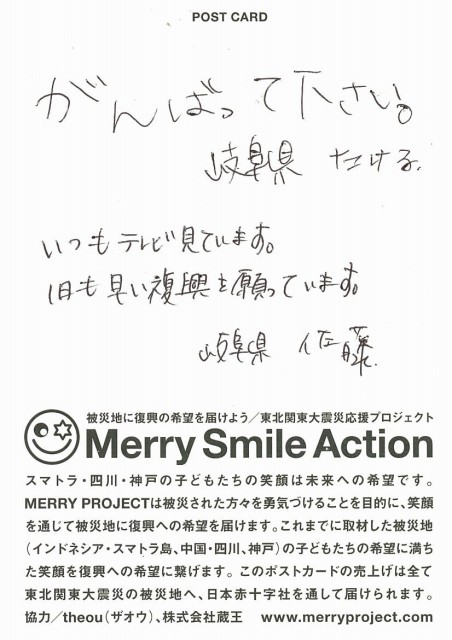 POST CARD
がんばって下さい。
岐阜県 たける.
いつもテレビ見ています。
1日も早い復興を願っています。
岐阜県 佐藤
被災地に復興の希望を届けよう／東北関東大震災応援プロジェクト
Merry Smile Action
スマトラ・四川・神戸の子どもたちの笑顔は未来への希望です。
MERRY PROJECTは被災された方々を勇気づけることを目的に、笑顔
を通じて被災地に復興への希望を届けます。これまでに取材した被災地
（インドネシア・スマトラ島、中国・四川、神戸）の子どもたちの希望に満ち
た笑顔を復興への希望に繋げます。このポストカードの売上げは全て
東北関東大震災の被災地へ、日本赤十字社を通して届けられます。
協力／theou（ザオウ）、株式会社蔵王 www.merryproject.com